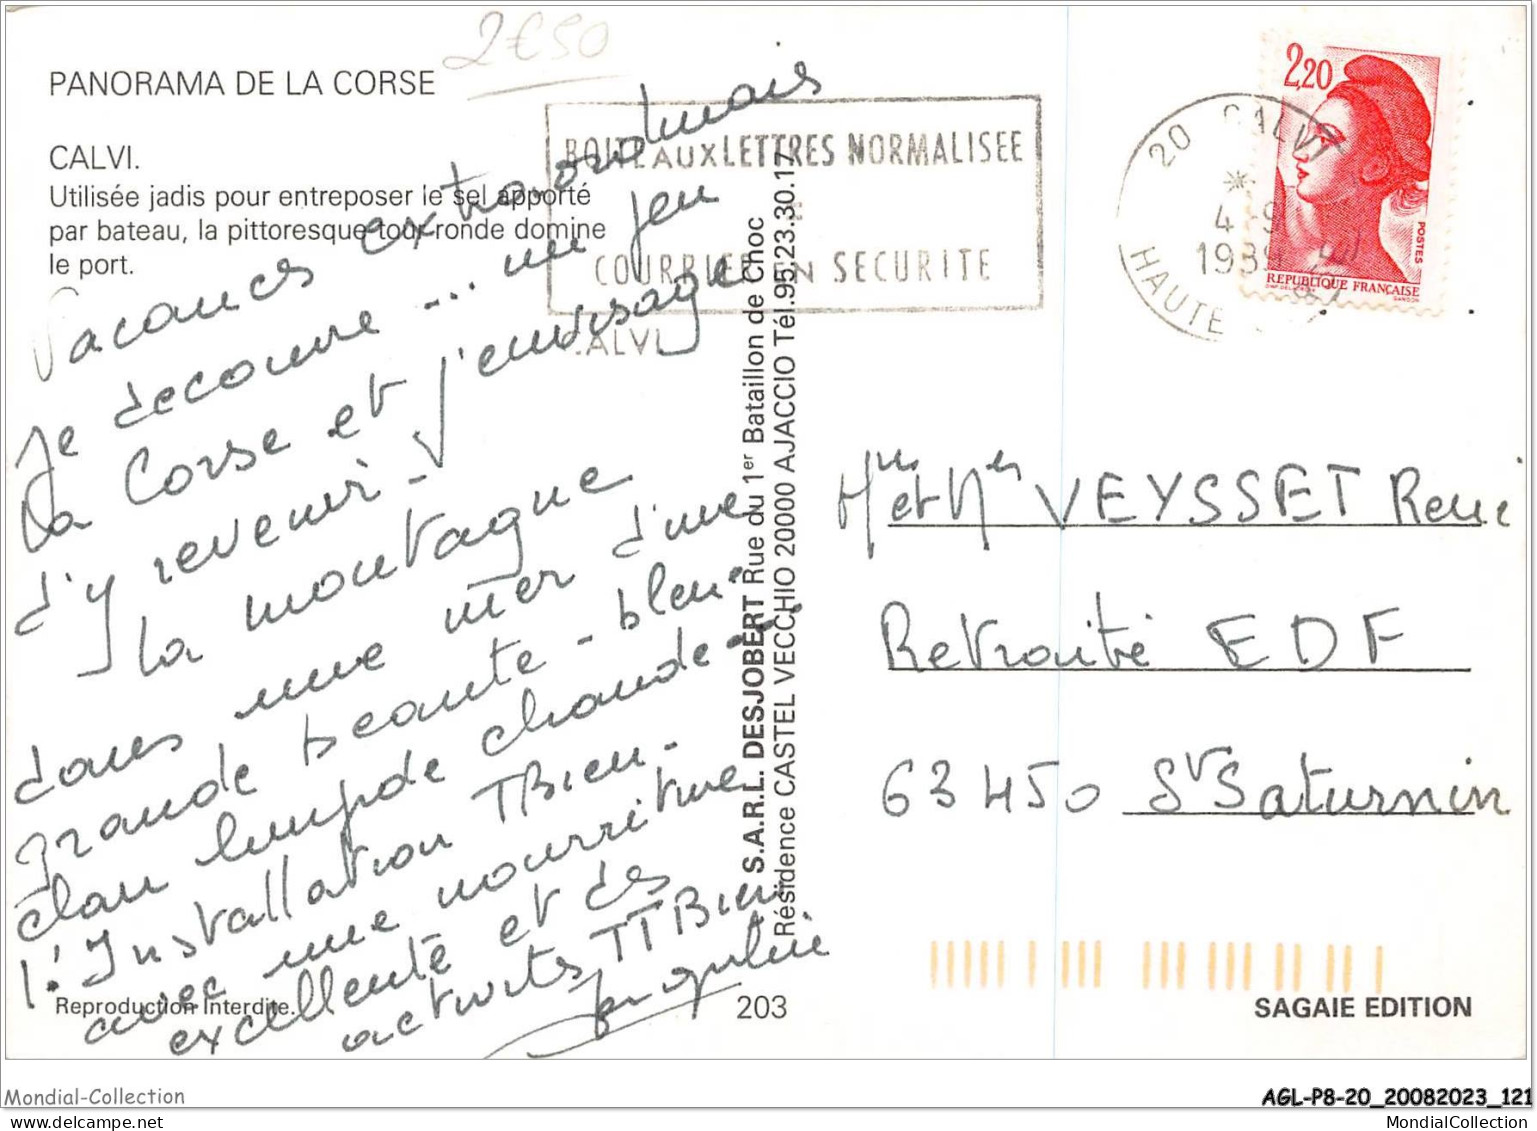 2€50
PANORAMA DE LA CORSE
CALVI.
Utilisée jadis pour entreposer le sel apporté
par bateau, la pittoresque tour ronde domine
le port.
Vacances extraordinais
Je decouvre ... un peu
la Corse et j'envisage
d'y revenir -
la montagne
dans une mer d'une
grande beauté - bleue
clair limpide chaude
l'Installation TBien -
avec une nourriture
excellente et des
activités TTBien
Reproduction Interdite.
203
S.A.R.L. DESJOBERT Rue du 1er Bataillon de Choc
Résidence CASTEL VECCHIO 20000 AJACCIO Tél.95.23.30.17
BOITE AUX LETTRES NORMALISEE
COURRIER EN SECURITE
CALVI
20 CALVI
4 -9
1989
HAUTE
2,20
POSTES
REPUBLIQUE FRANÇAISE
GANDON
Mme et Mr VEYSSET René
Retraité EDF
63450 St Saturnin
SAGAIE EDITION
Mondial-Collection
AGL-P8-20_20082023_121
MondialCollection